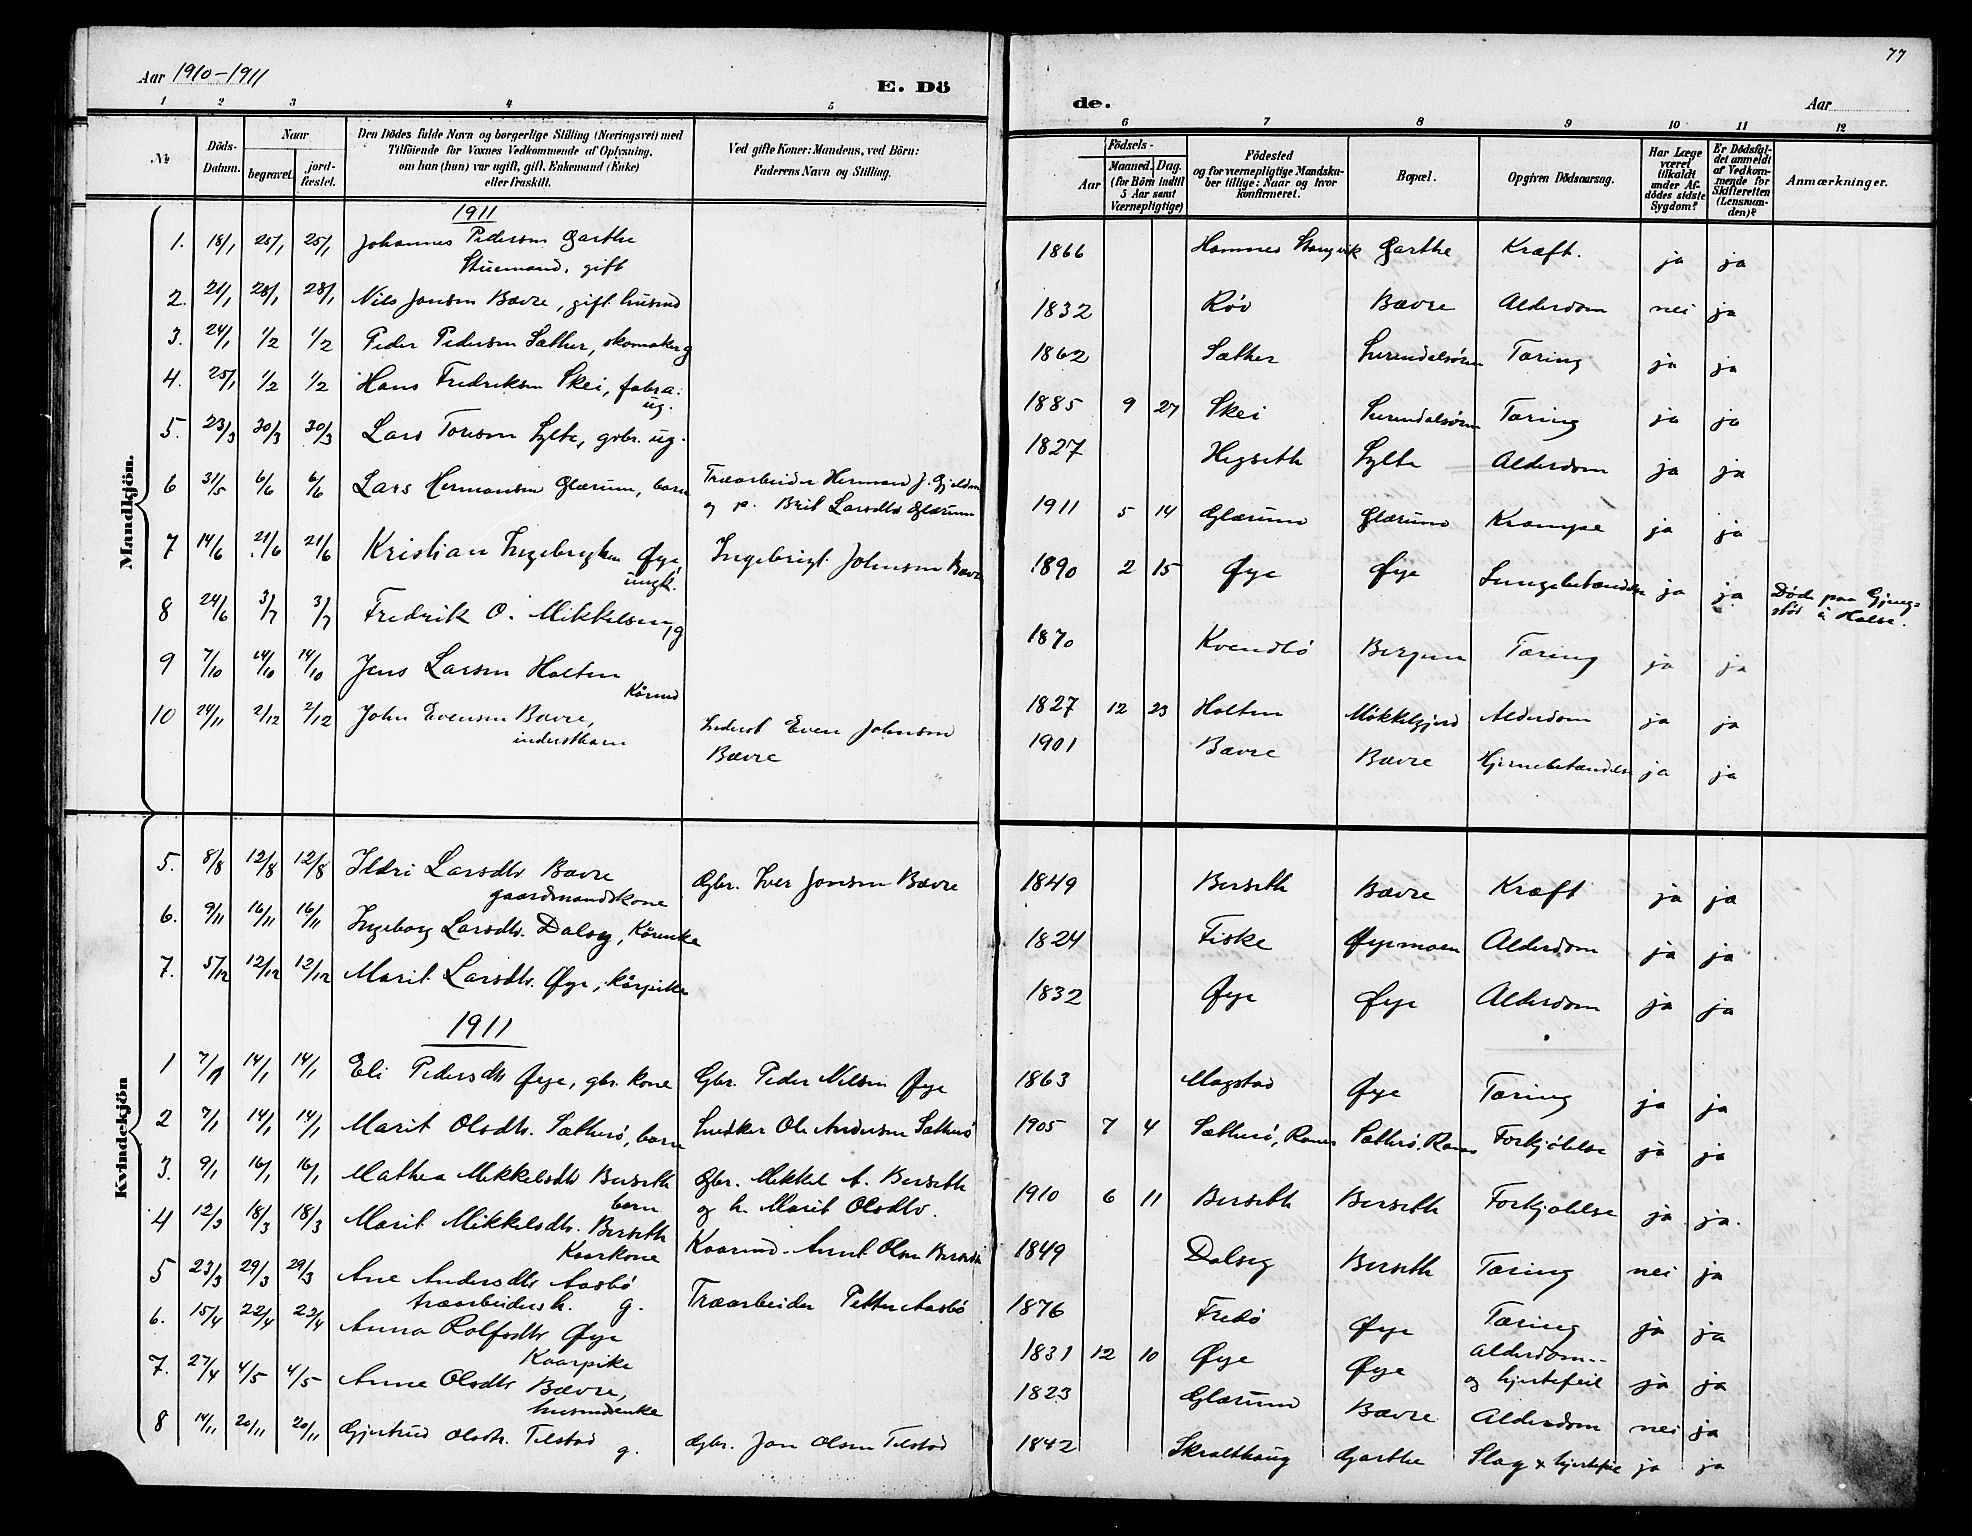 77
Aar 1910-1911
E. Dö
de.
Aar
1 2 3 4 5 6 7 8 9 10 11 12
No
Döds-Datum.
Naar
begravet.
jordfæstet.
Den Dödes fulde Navn og borgerlige Stilling (Næringsvei) med
Tilföiende for Voxnes Vedkommende af Oplysning,
om han (hun) var ugift, gift, Enkemand (Enke)
eller fraskilt.
Ved gifte Koner: Mandens, ved Börn:
Faderens Navn og Stilling.
Födsels-
Aar
Maaned. Dag.
(for Börn indtil
5 Aar samt
Værnepligtige)
Födested
og for værnepligtige Mandska-
ber tillige: Naar og hvor
konfirmeret.
Bopæl.
Opgiven Dödsaarsag.
Har Læge
været
tilkaldt
under Af-
dödes sidste
Sygdom?
Er Dödsfal-
det anmeldt
af Vedkom-
mende for
Skifteretten
(Lensman-
den)?
Anmærkninger.
Mandkjön.
1911
1. 18/1 25/1 25/1 Johannes Pedersen Garthe 1866 Hamnes Stangvik Garthe Kræft. ja ja
Stuemand, gift
2. 21/1 28/1 28/1 Nils Jonsen Bævre, gift husmd 1832 Røv Bævre Alderdom nei ja
3. 24/1 1/2 1/2 Peder Pedersen Sæther, skomaker g 1862 Sæther Surendalsøren Tæring ja ja
4. 25/1 1/2 1/2 Hans Fredriksen Skei, fabra. 1885 9 27 Skei Surendalsøren Tæring ja ja
ug.
5. 23/3 30/3 30/3 Lars Toresen Sylte, gbr. ug. 1827 Hegseth Sylte Alderdom ja ja
6 31/5 6/6 6/6 Lars Hermansen Glærum, barn Træarbeider Herman J. Gjeldnes 1911 5 14 Glærum Glærum Krampe ja ja
og p. Brit Larsdtr Glærum
7 14/6 21/6 21/6 Kristian Ingebrigtsen Øye, Ingebrigt Johnsen Bævre 1890 2 15 Øye Øye Lungebetændelse ja ja Døde paa Gjeng-
ungk. stø i Halse.
8 24/6 3/7 3/7 Fredrik O. Mikkelsen, g 1870 Kvendbø Bergen Tæring ja ja
9 7/10 14/10 14/10 Jens Larsen Holten 1827 12 23 Holten Mikkelgjerd Alderdom ja ja
Kårmd
10 24/11 2/12 2/12 John Evensen Bævre, Inderst Even Johnsen 1901 Bævre Bævre Hjernebetændelse ja ja
inderstbarn Bævre
Kvindekjön
5. 8/8 12/8 12/8 Ildri Larsdtr Bævre Gbr. Iver Jonsen Bævre 1849 Berseth Bævre Kræft ja ja
gaardmandskone
6. 9/11 16/11 16/11 Ingeborg Larsdtr. Dalseg, Kårenke 1824 Fiske Øyemoen Alderdom ja ja
7. 5/12 12/12 12/12 Marit Larsdtr. Øye, kårpike 1832 Øye Øye Alderdom ja ja
1911
1 7/1 14/1 14/1 Eli Pedersdtr Øye, gbr. kone Gbr. Peder Nilsen Øye 1863 Mogstad Øye Tæring ja ja
2 7/1 14/1 14/1 Marit Olsdtr. Sætherø, barn Snedker Ole Andersen Sætherø 1905 7 4 Sætherø, Ranes Sætherø, Ranes Forkjølelse ja ja
3. 9/1 16/1 16/1 Mathea Mikkelsdtr Berseth Gbr. Mikkel A. Berseth 1910 6 11 Berseth Berseth Forkjølelse ja ja.
barn og h. Marit Olsdtr.
4 12/3 18/3 18/3 Marit Mikkelsdtr. Berseth Kaarmd. Arnt Olsen Berseth 1849 Dalseg Berseth Tæring nei ja
Kaarkone
5 23/3 29/3 29/3 Ane Andersdtr Aasbø Træarbeider Petter Aasbø 1876 Fredø Øye Tæring ja ja
træarbeidersh. g.
6. 15/4 22/4 22/4 Anna Rolfsdtr Øye 1831 12 10 Øye Øye Alderdom
Kaarpike og hjertefeil ja ja
7. 27/4 4/5 4/5 Anne Olsdtr Bævre, 1823 Glærum Bævre Alderdom nei ja
husmdsenke
8 14/11 20/11 20/11 Gjertrud Olsdtr. Telstad Gbr. Jon Olsen Telstad 1842 Skralthaug Garthe Slag & hjertefeil ja ja
g.